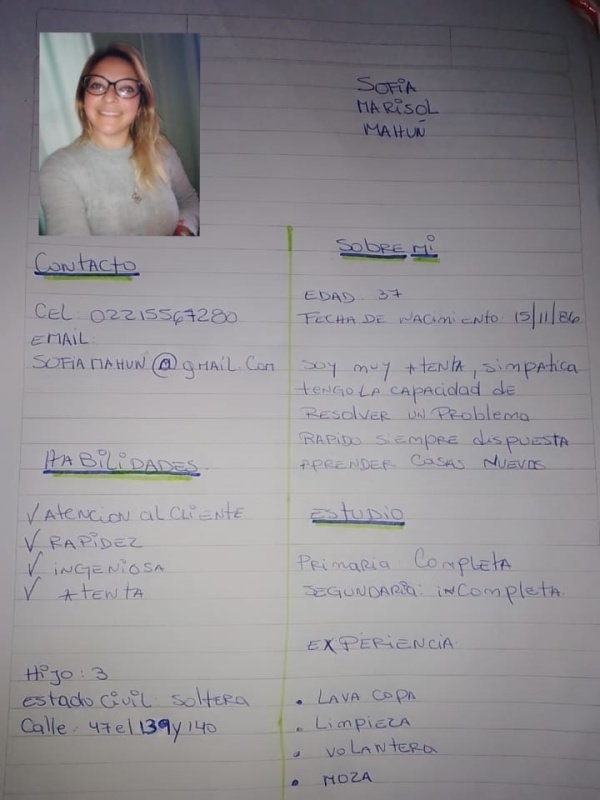 SOFIA
MARISOL
MAHUÑ
CONTACTO
CEL: 02215567280
EMAIL:
SOFIAMAHUÑ@gmail.Com
HABILIDADES
√ ATENCION al CLIENTE
√ RAPIDEZ
√ INGENIOSA
√ ATENTA
Hijo: 3
Estado Civil: Soltera
Calle: 47 e/ 139 y 140
SOBRE Mi
EDAD 37
FECHA DE NACIMIENTO: 15/11/86
Soy muy ATENTA, Simpatica
TENGO LA CAPACIDAD de
RESOLVER UN Problema
RAPIDO SIEMPRE dispuesta
APRENDER CASAS NUEVOS
ESTUDIO
Primaria: Completa
SEGUNDARIA: INCompleta
EXPERIENCIA
• LAVA COPA
• LIMPIEZA
• VOLANTERA
• MOZA